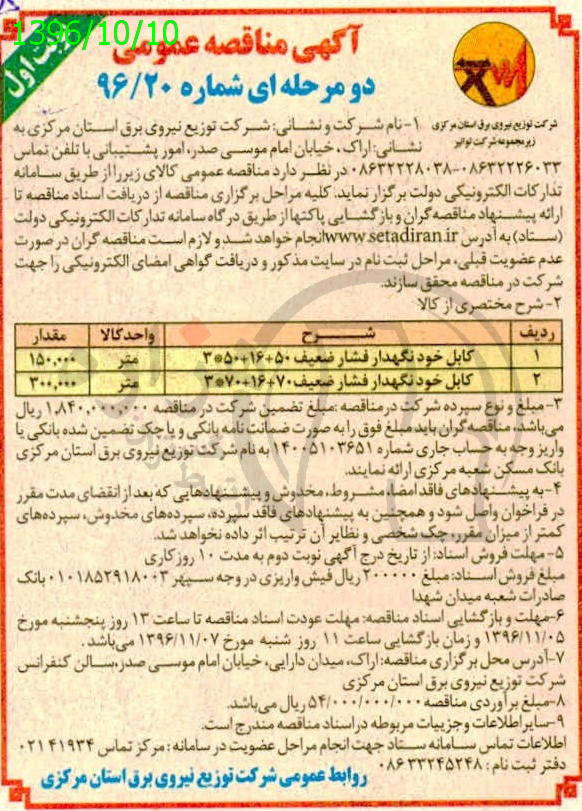 1396/10/10
نوبت اول
آگهی مناقصه عمومی
دو مرحله ای شماره ۹۶/۲۰
شرکت توزیع نیروی برق استان مرکزی
زیرمجموعه شرکت توانیر
۱- نام شرکت و نشانی: شرکت توزیع نیروی برق استان مرکزی به
نشانی: اراک، خیابان امام موسی صدر، امور پشتیبانی با تلفن تماس
۰۸۶۳۲۲۲۸۰۳۸-۰۸۶۳۲۲۲۶۰۳۳ در نظر دارد مناقصه عمومی کالای زیر را از طریق سامانه
تدارکات الکترونیکی دولت برگزار نماید. کلیه مراحل برگزاری مناقصه از دریافت اسناد مناقصه تا
ارائه پیشنهاد مناقصه گران و بازگشایی پاکتها از طریق درگاه سامانه تدارکات الکترونیکی دولت
(ستاد) به آدرس www.setadiran.ir انجام خواهد شد و لازم است مناقصه گران در صورت
عدم عضویت قبلی، مراحل ثبت نام در سایت مذکور و دریافت گواهی امضای الکترونیکی را جهت
شرکت در مناقصه محقق سازند.
۲- شرح مختصری از کالا
ردیف شرح واحد کالا مقدار
۱ کابل خود نگهدار فشار ضعیف ۵۰+۱۶+۵۰*۳ متر ۱۵۰,۰۰۰
۲ کابل خود نگهدار فشار ضعیف ۷۰+۱۶+۷۰*۳ متر ۳۰۰,۰۰۰
۳- مبلغ و نوع سپرده شرکت در مناقصه: مبلغ تضمین شرکت در مناقصه ۱,۸۴۰,۰۰۰,۰۰۰ ریال
می‌باشد، مناقصه گران باید مبلغ فوق را به صورت ضمانت نامه بانکی و یا چک تضمین شده بانکی یا
واریز وجه به حساب جاری شماره ۱۴۰۰۵۱۰۳۶۵۱ به نام شرکت توزیع نیروی برق استان مرکزی
بانک مسکن شعبه مرکزی ارائه نمایند.
۴- به پیشنهادهای فاقد امضا، مشروط، مخدوش و پیشنهادهایی که بعد از انقضای مدت مقرر
در فراخوان واصل شود و همچنین به پیشنهادهای فاقد سپرده، سپرده‌های مخدوش، سپرده‌های
کمتر از میزان مقرر، چک شخصی و نظایر آن ترتیب اثر داده نخواهد شد.
۵- مهلت فروش اسناد: از تاریخ درج آگهی نوبت دوم به مدت ۱۰ روز کاری
مبلغ فروش اسناد: مبلغ ۲۰۰۰۰۰۰ ریال فیش واریزی در وجه سپهر ۰۱۰۱۸۵۲۹۱۸۰۰۳ بانک
صادرات شعبه میدان شهدا
۶- مهلت و بازگشایی اسناد مناقصه: مهلت عودت اسناد مناقصه تا ساعت ۱۳ روز پنجشنبه مورخ
۱۳۹۶/۱۱/۰۵ و زمان بازگشایی ساعت ۱۱ روز شنبه مورخ ۱۳۹۶/۱۱/۰۷ می‌باشد.
۷- آدرس محل برگزاری مناقصه: اراک، میدان دارایی، خیابان امام موسی صدر، سالن کنفرانس
شرکت توزیع نیروی برق استان مرکزی
۸- مبلغ برآوردی مناقصه ۵۴/۰۰۰/۰۰۰/۰۰۰ ریال می‌باشد.
۹- سایر اطلاعات و جزییات مربوطه در اسناد مناقصه مندرج است.
اطلاعات تماس سامانه ستاد جهت انجام مراحل عضویت در سامانه: مرکز تماس ۴۱۹۳۴ ۰۲۱
دفتر ثبت نام: ۳۳۲۴۵۲۴۸ ۰۸۶
روابط عمومی شرکت توزیع نیروی برق استان مرکزی